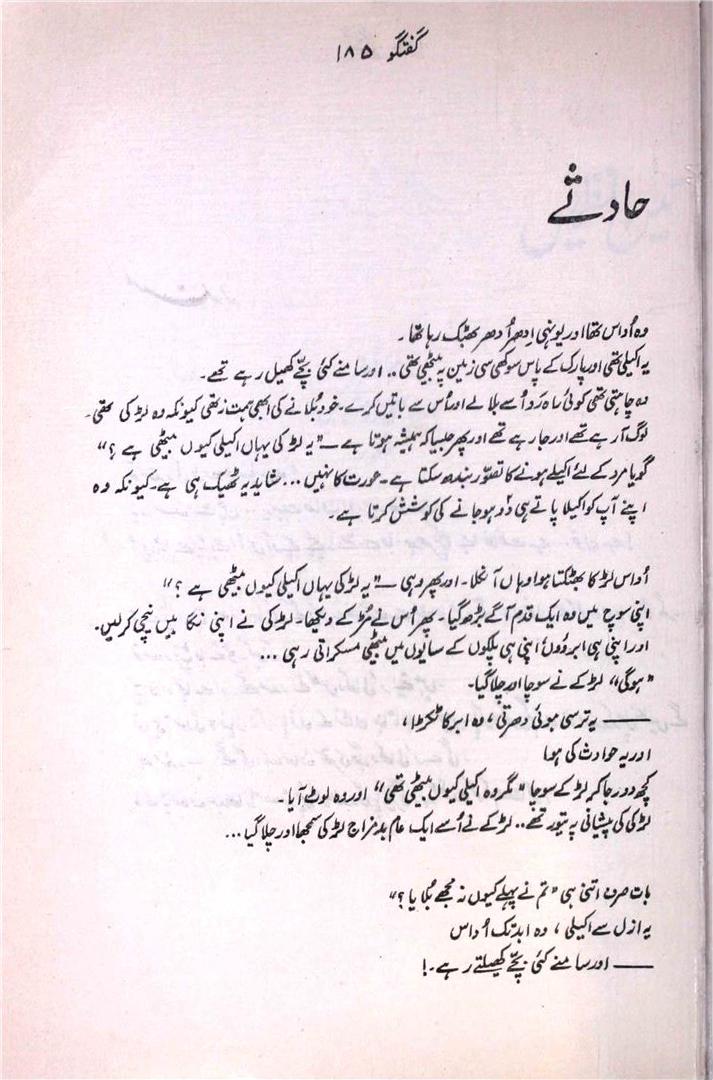 گفتگو ۱۸۵
حادثے
وہ اُداس تھا اور یونہی اِدھر اُدھر بھٹک رہا تھا۔
یہ اکیلی تھی اور پارک کے پاس سوکھی سی زمین پہ بیٹھی تھی.. اور سامنے کئی بچّے کھیل رہے تھے۔
وہ چاہتی تھی کوئی راہ رَو اُسے بلالے اور اُس سے باتیں کرے۔ خود بُلانے کی ابھی ہمت نہ تھی کیونکہ وہ لڑکی تھی۔
لوگ آ رہے تھے اور جا رہے تھے اور پھر جیسا کہ ہمیشہ ہوتا ہے — "یہ لڑکی یہاں اکیلی کیوں بیٹھی ہے؟"
گویا مرد کے لئے اکیلے ہونے کا تصوّر بندھ سکتا ہے۔ عورت کا نہیں ... شاید یہ ٹھیک ہی ہے۔ کیونکہ وہ
اپنے آپ کو اکیلا پاتے ہی دو ہو جانے کی کوشش کرتا ہے۔
اُداس لڑکا بھٹکتا ہوا وہاں آ نکلا۔ اور پھر وہی — "یہ لڑکی یہاں اکیلی کیوں بیٹھی ہے؟"
اپنی سوچ میں وہ ایک قدم آگے بڑھ گیا۔ پھر اُس نے مُڑ کے دیکھا۔ لڑکی نے اپنی نگاہیں نیچی کر لیں۔
اور اپنی ہی ابروؤں، اپنی ہی پلکوں کے سایوں میں بیٹھی مسکراتی رہی ...
"ہوگی" لڑکے نے سوچا اور چلا گیا۔
—— یہ ترسی ہوئی دھرتی، وہ ابر کا ٹکڑا،
اور یہ حوادث کی ہوا
کچھ دور جا کر لڑکے سوچا "مگر وہ اکیلی کیوں بیٹھی تھی" اور وہ لوٹ آیا۔
لڑکی کی پیشانی پہ تیور تھے.. لڑکے نے اُسے ایک عام بدمزاج لڑکی سمجھا اور چلا گیا...
بات صرف اتنی ہی "تم نے پہلے کیوں نہ مجھے بُلایا؟"
یہ ازل سے اکیلی، وہ ابد تک اُداس
—— اور سامنے کئی بچّے کھیلتے رہے۔!